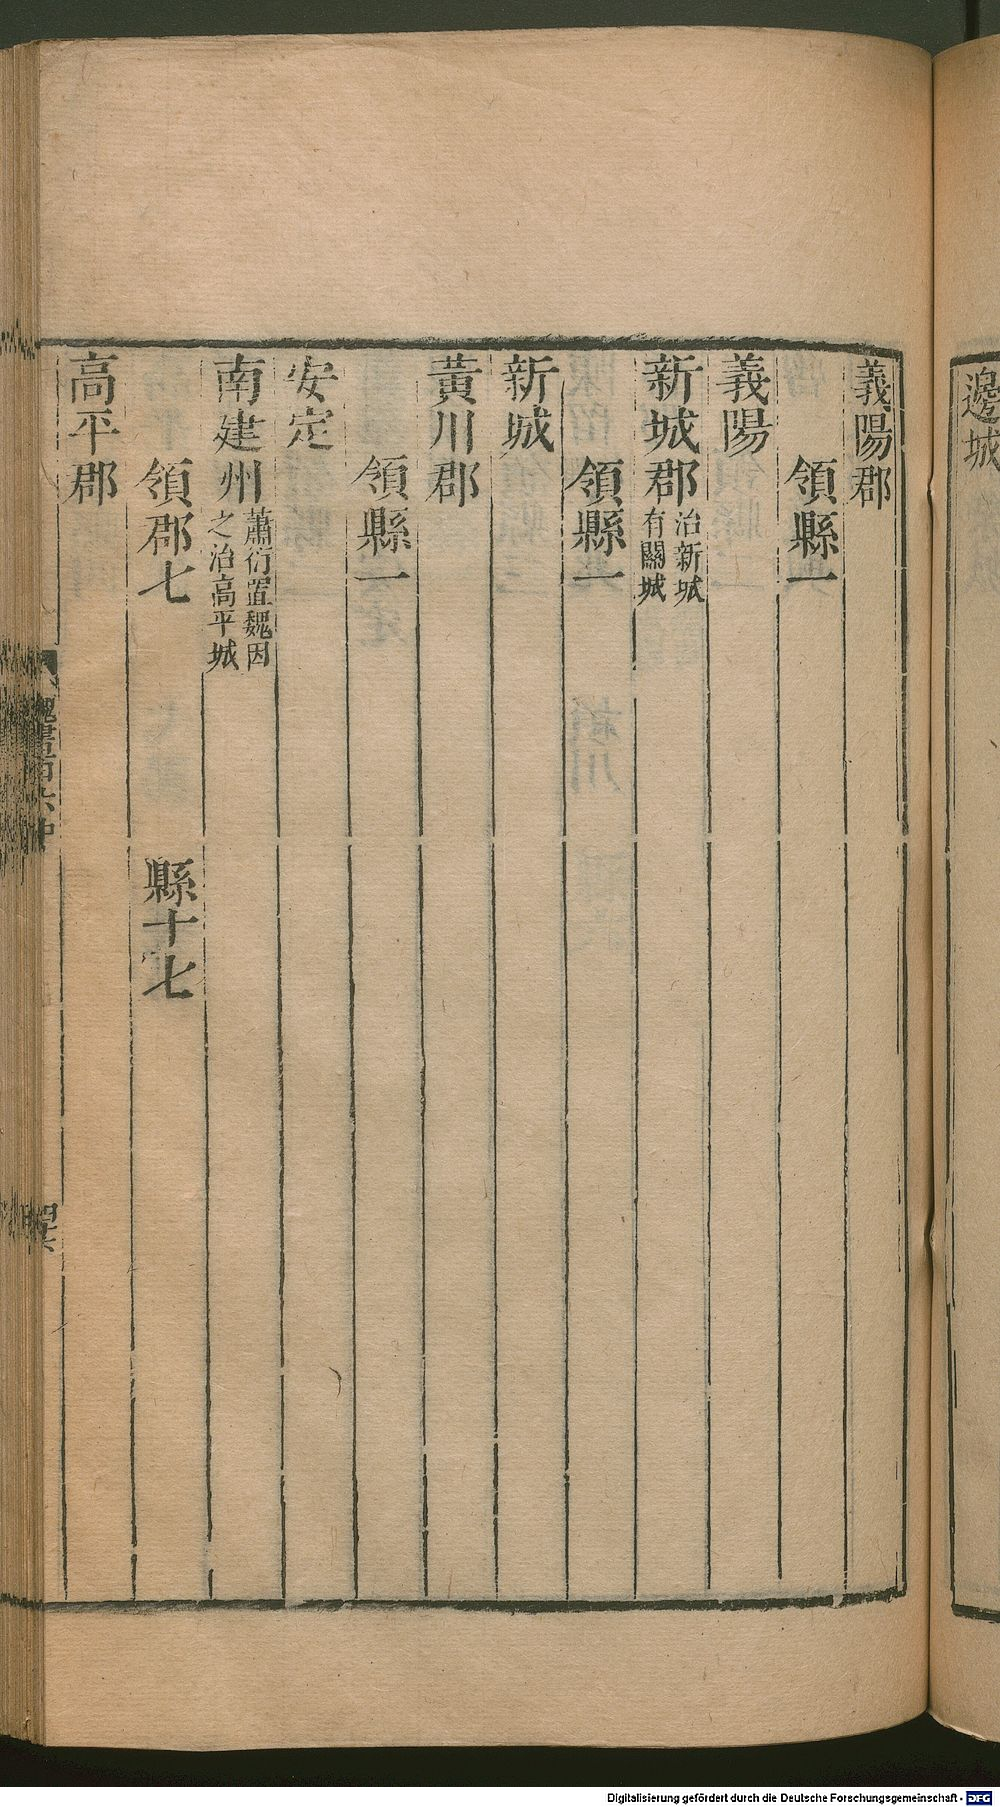 邊城
義陽郡
領縣一
義陽
新城郡治新城
有關城
領縣一
新城
黃川郡
領縣一
安定
南建州蕭衍置魏因
之治高平城
領郡七 縣十七
高平郡
魏書百六中
Digitalisierung gefördert durch die Deutsche Forschungsgemeinschaft - DFG